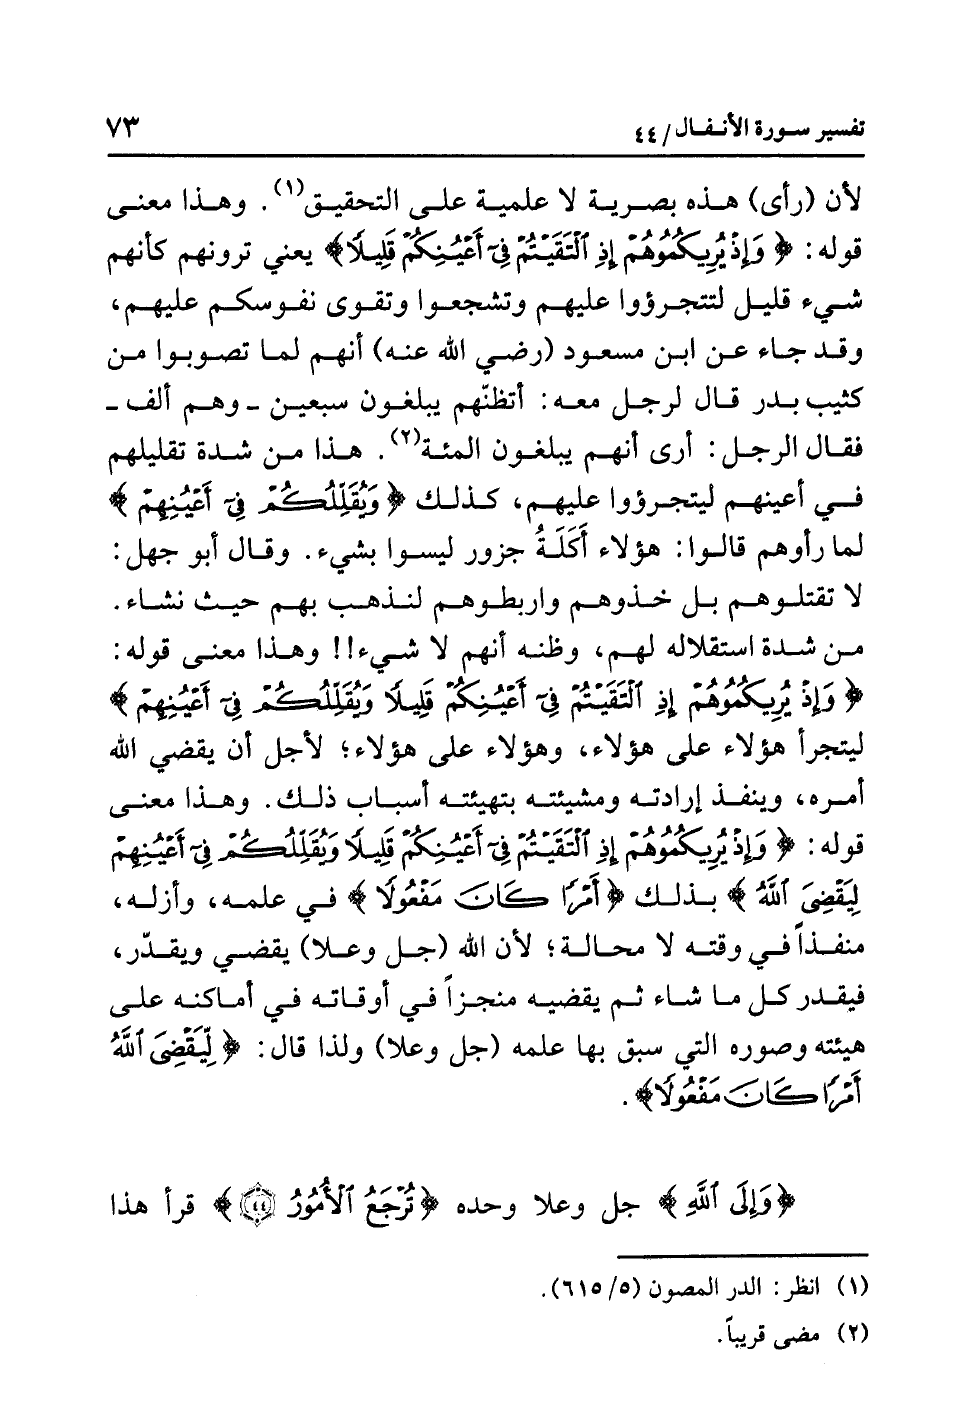 تفسير سورة الأنفال/ ٤٤ ٧٣
لأن (رأى) هذه بصرية لا علمية على التحقيق(١). وهذا معنى
قوله: ﴿ وَإِذْ يُرِيكُمُوهُمْ إِذِ ٱلْتَقَيْتُمْ فِىٓ أَعْيُنِكُمْ قَلِيلًا﴾ يعني ترونهم كأنهم
شيء قليل لتتجرؤوا عليهم وتشجعوا وتقوى نفوسكم عليهم،
وقد جاء عن ابن مسعود (رضي الله عنه) أنهم لما تصوبوا من
كثيب بدر قال لرجل معه: أتظنّهم يبلغون سبعين ـ وهم ألف ـ
فقال الرجل: أرى أنهم يبلغون المئة(٢). هذا من شدة تقليلهم
في أعينهم ليتجرؤوا عليهم، كذلك ﴿وَيُقَلِّلُكُمْ فِىٓ أَعْيُنِهِمْ ﴾
لما رأوهم قالوا: هؤلاء أَكَلَةُ جزور ليسوا بشيء. وقال أبو جهل:
لا تقتلوهم بل خذوهم واربطوهم لنذهب بهم حيث نشاء.
من شدة استقلاله لهم، وظنه أنهم لا شيء!! وهذا معنى قوله:
﴿ وَإِذْ يُرِيكُمُوهُمْ إِذِ ٱلْتَقَيْتُمْ فِىٓ أَعْيُنِكُمْ قَلِيلًا وَيُقَلِّلُكُمْ فِىٓ أَعْيُنِهِمْ ﴾
ليتجرأ هؤلاء على هؤلاء، وهؤلاء على هؤلاء؛ لأجل أن يقضي الله
أمره، وينفذ إرادته ومشيئته بتهيئته أسباب ذلك. وهذا معنى
قوله: ﴿ وَإِذْ يُرِيكُمُوهُمْ إِذِ ٱلْتَقَيْتُمْ فِىٓ أَعْيُنِكُمْ قَلِيلًا وَيُقَلِّلُكُمْ فِىٓ أَعْيُنِهِمْ
لِيَقْضِىَ ٱللَّهُ ﴾ بذلك ﴿أَمْرًا كَانَ مَفْعُولًا ﴾ في علمه، وأزله،
منفذاً في وقته لا محالة؛ لأن الله (جل وعلا) يقضي ويقدّر،
فيقدر كل ما شاء ثم يقضيه منجزاً في أوقاته في أماكنه على
هيئته وصوره التي سبق بها علمه (جل وعلا) ولذا قال: ﴿ لِّيَقْضِىَ ٱللَّهُ
أَمْرًا كَانَ مَفْعُولًا﴾.
﴿وَإِلَى ٱللَّهِ ﴾ جل وعلا وحده ﴿تُرْجَعُ ٱلْأُمُورُ ٤٤﴾ قرأ هذا
(١) انظر: الدر المصون (٥/ ٦١٥).
(٢) مضى قريباً.